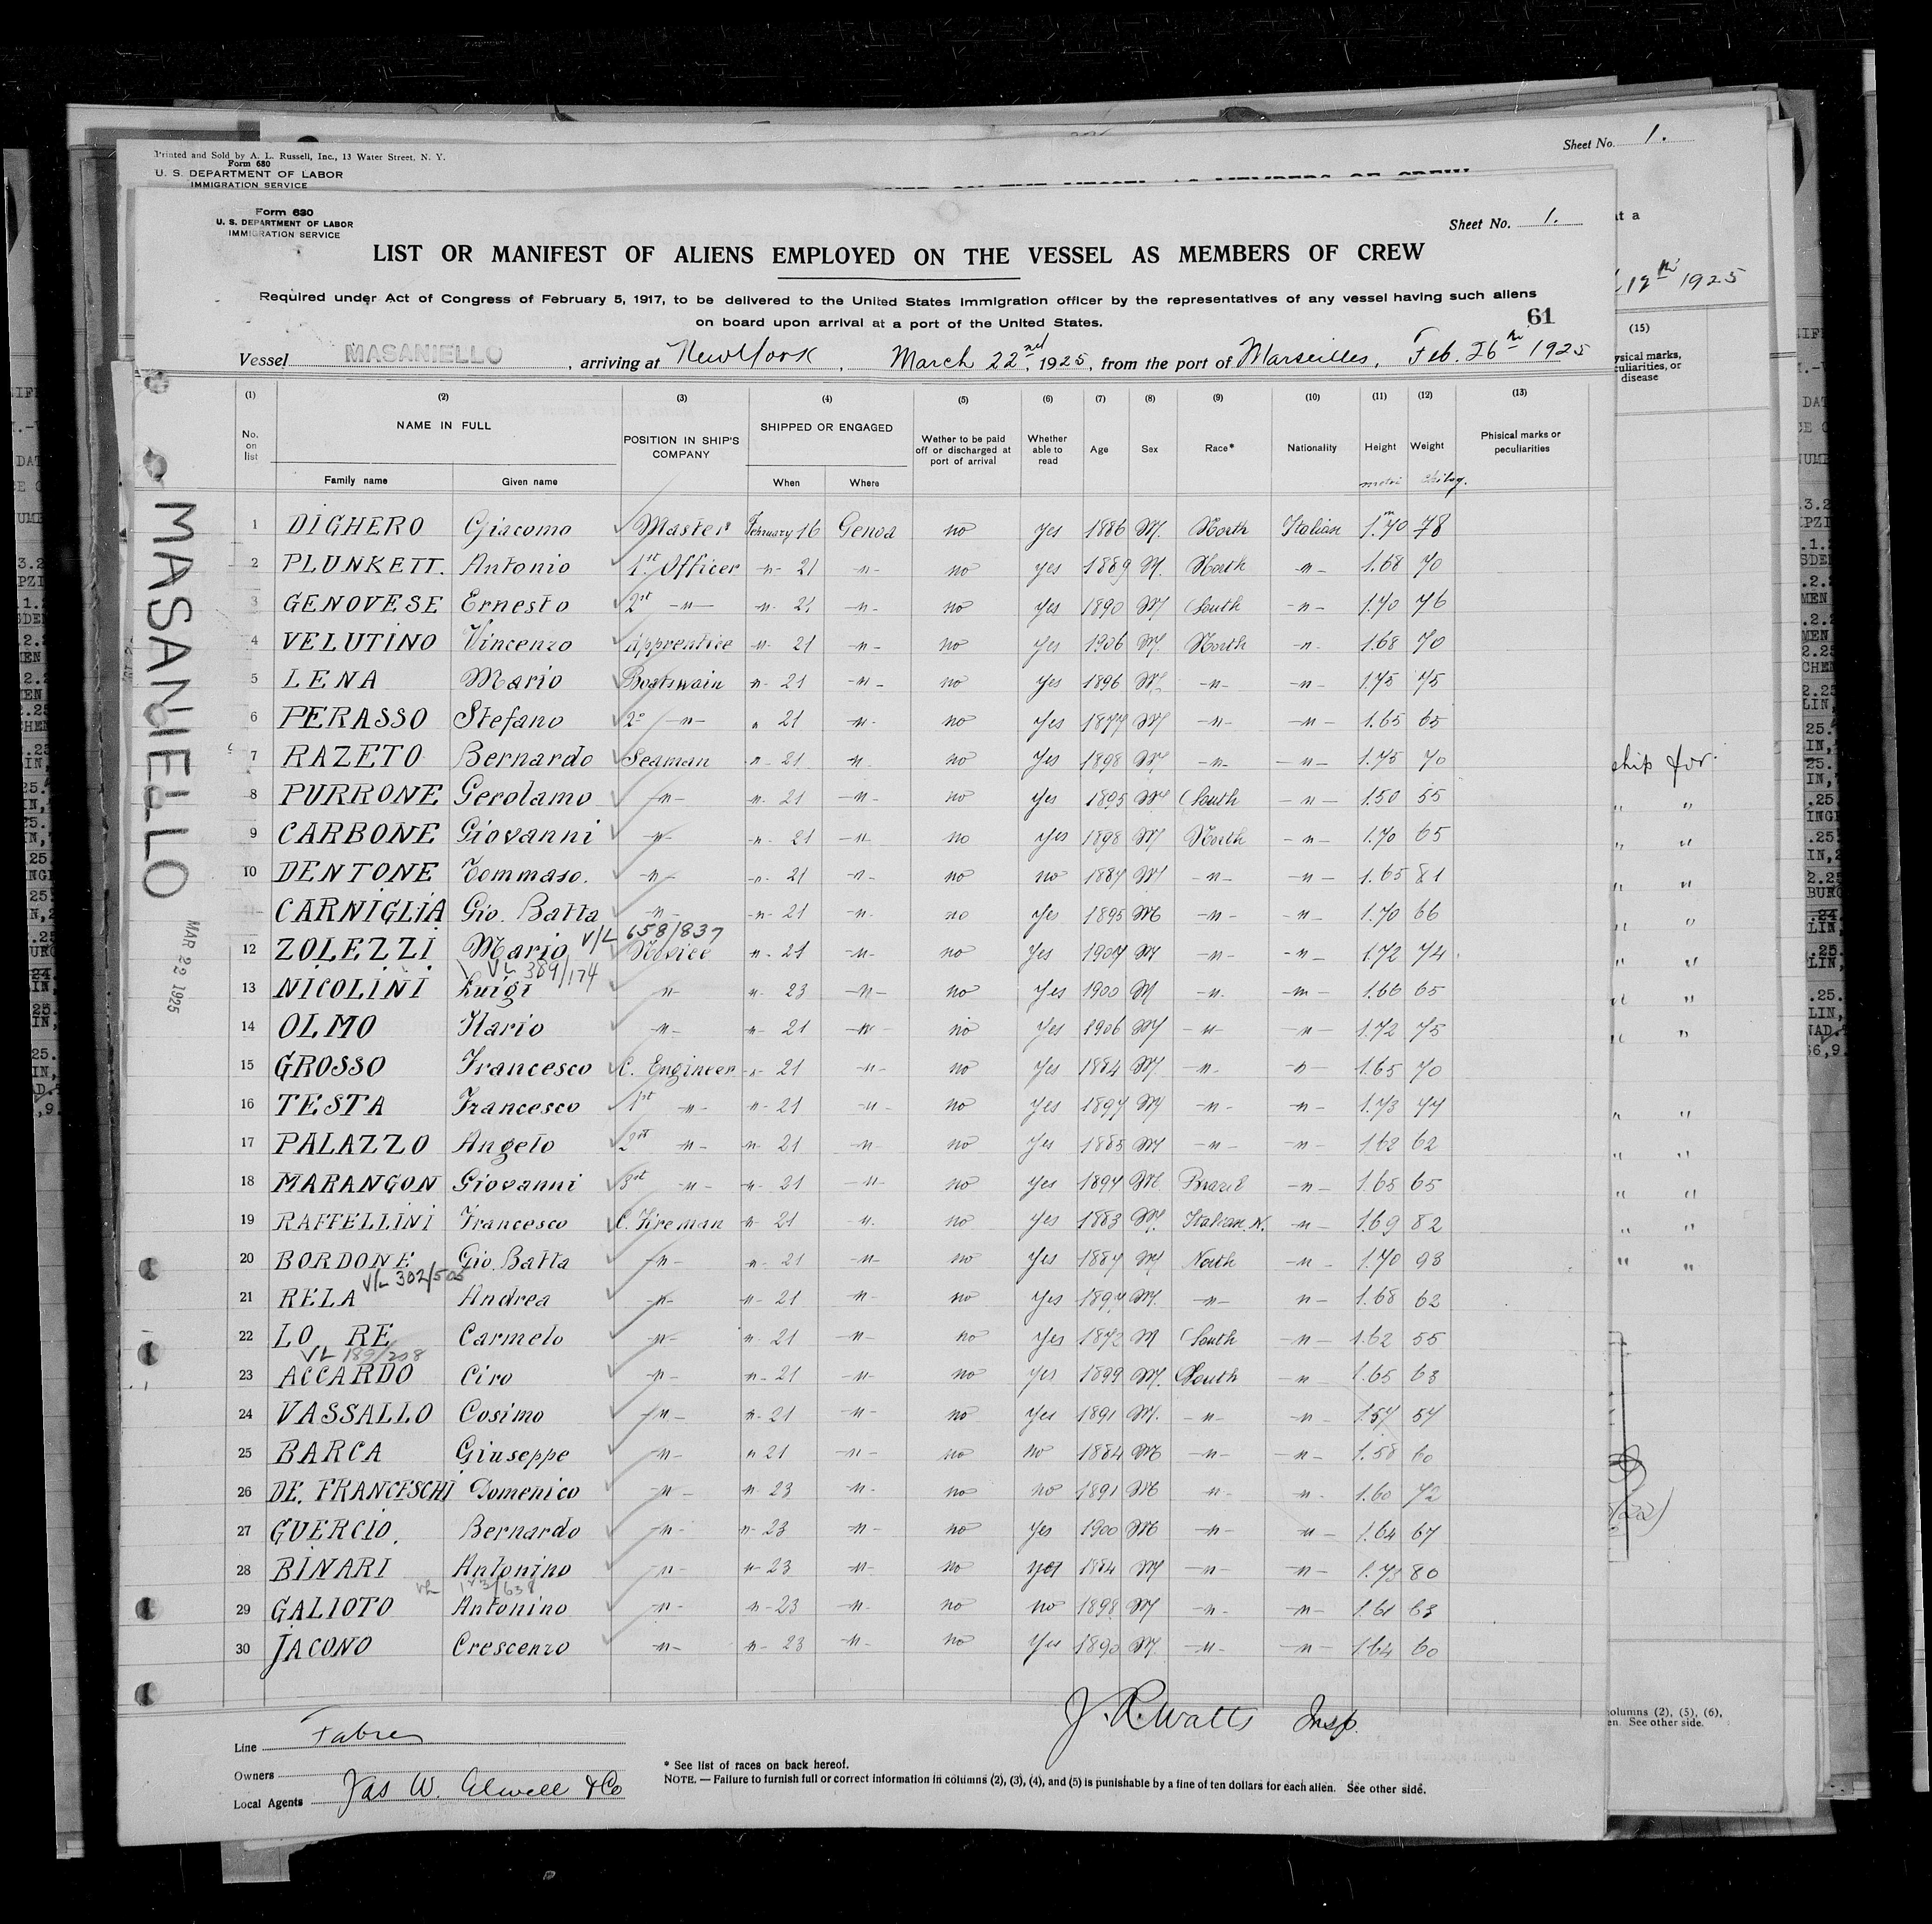 Printed and Sold by A. L. Russell, Inc., 13 Water Street, N. Y.
Form 680
U. S. DEPARTMENT OF LABOR
IMMIGRATION SERVICE
Sheet No. 1.
Form 680
U. S. DEPARTMENT OF LABOR
IMMIGRATION SERVICE
Sheet No. 1.
LIST OR MANIFEST OF ALIENS EMPLOYED ON THE VESSEL AS MEMBERS OF CREW
Required under Act of Congress of February 5, 1917, to be delivered to the United States Immigration officer by the representatives of any vessel having such aliens
on board upon arrival at a port of the United States.
61
Vessel MASANIELLO, arriving at New York, March 22nd, 1925, from the port of Marseilles, Feb. 26th 1925
(1) (2) (3) (4) (5) (6) (7) (8) (9) (10) (11) (12) (13)
No. on list NAME IN FULL Family name Given name POSITION IN SHIP'S COMPANY SHIPPED OR ENGAGED When Where Wether to be paid off or discharged at port of arrival Whether able to read Age Sex Race* Nationality Height Weight Phisical marks or peculiarities
1 DIGHERO Giacomo Master February 16 Genoa no yes 1886 M. North Italian 1.m70 78
2 PLUNKETT. Antonio 1st Officer -"- 21 -"- no yes 1889 M. North -"- 1.68 70
3 GENOVESE Ernesto 2st -"- -"- 21 -"- no yes 1890 M South -"- 1.70 76
4 VELUTINO Vincenzo Apprentice -"- 21 -"- no yes 1906 M. North -"- 1.68 70
5 LENA Mario Boatswain -"- 21 -"- no yes 1896 M -"- -"- 1.75 75
6 PERASSO Stefano 2° -"- " 21 -"- no yes 1877 M -"- -"- 1.65 65
7 RAZETO Bernardo Seaman -"- 21 -"- no yes 1898 M -"- -"- 1.75 70
8 PURRONE Gerolamo -"- -"- 21 -"- no yes 1895 M South -"- 1.50 55
9 CARBONE Giovanni -"- -"- 21 -"- no yes 1898 M North -"- 1.70 65
10 DENTONE Tommaso. -"- -"- 21 -"- no no 1887 M -"- -"- 1.65 81
CARNIGLIA Gio. Batta -"- -"- 21 -"- no yes 1895 M -"- -"- 1.70 66
V/L 658/837
12 ZOLEZZI Mario Novice -"- 21 -"- no yes 1907 M -"- -"- 1.72 74
VL 389/174
13 NICOLINI Luigi -"- -"- 23 -"- no yes 1900 M -"- -"- 1.66 65
14 OLMO Ilario -"- -"- 21 -"- no yes 1906 M -"- -"- 1.72 75
15 GROSSO Francesco C. Engineer -"- 21 -"- no yes 1884 M -"- -"- 1.65 70
16 TESTA Francesco 1st -"- -"- 21 -"- no yes 1897 M -"- -"- 1.73 77
17 PALAZZO Angelo 2st -"- -"- 21 -"- no yes 1885 M -"- -"- 1.62 62
18 MARANGON Giovanni 3st -"- -"- 21 -"- no yes 1897 M Brazil -"- 1.65 65
19 RAFFELLINI Francesco C. Fireman -"- 21 -"- no yes 1883 M. Italian N. -"- 1.69 82
20 BORDONE Gio. Batta -"- -"- 21 -"- no yes 1887 M North -"- 1.70 93
V/L 302/505
21 RELA Andrea -"- -"- 21 -"- no yes 1897 M. -"- -"- 1.68 62
22 LO RE Carmelo -"- -"- 21 -"- no yes 1872 M South -"- 1.62 55
VL 189/208
23 ACCARDO Ciro -"- -"- 21 -"- no yes 1899 M. South -"- 1.65 63
24 VASSALLO Cosimo -"- -"- 21 -"- no yes 1891 M. -"- -"- 1.57 57
25 BARCA Giuseppe -"- -"- 21 -"- no no 1884 M -"- -"- 1.58 60
26 DE. FRANCESCHI Domenico -"- -"- 23 -"- no no 1891 M -"- -"- 1.60 72
27 GUERCIO. Bernardo -"- -"- 23 -"- no yes 1900 M -"- -"- 1.64 67
28 BINARI Antonino -"- -"- 23 -"- no 1884 M -"- -"- 80
29 GALIOTO Antonino -"- -"- 23 -"- no no 1898 M -"- -"- 1.61 63
30 JACONO Crescenzo -"- -"- 23 -"- no yes 1890 M. -"- -"- 1.64 60
J. R. Watts Insp.
Line Fabre
Owners
Local Agents Jas W. Elwell & Co
* See list of races on back hereof.
NOTE. — Failure to furnish full or correct information in columns (2), (3), (4), and (5) is punishable by a fine of ten dollars for each alien. See other side.
MASANIELLO
MAR 22 1925
at a
1925
(15)
ship for
columns (2), (5), (6),
See other side.